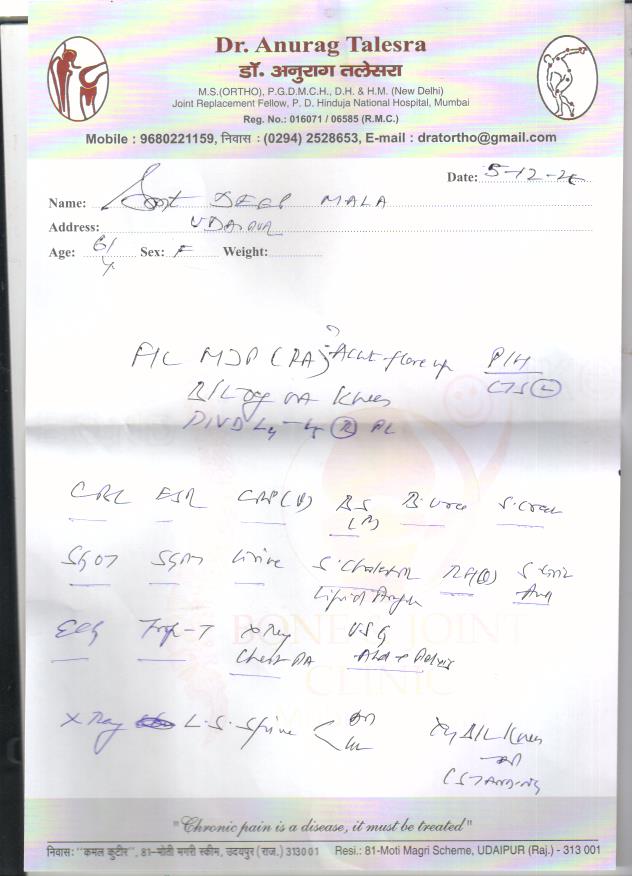 Dr. Anurag Talesra
डॉ. अनुराग तलेसरा
M.S.(ORTHO), P.G.D.M.C.H., D.H. & H.M. (New Delhi)
Joint Replacement Fellow, P. D. Hinduja National Hospital, Mumbai
Reg. No.: 016071 / 06585 (R.M.C.)
Mobile : 9680221159, निवास : (0294) 2528653, E-mail : dratortho@gmail.com
Date: 5-12-
Name: DEEP MALA
Address: UDAIPUR
Age: 61/Y Sex: F Weight:
F/C MJP (RA) ? Acut flare up P/H
B/L Og OA Knees CTS (L)
DIVD L4-L5 (R) PL
CBC ESR CRP(Q) BS B. Urea S. Creat
SGOT SGPT Urine S. Cholesterol RA(Q) S Uric
Lipid Acid
ECG Trop-T X Ray USG
Chest PA Abd + Pelvis
BONE JOINT
CLINIC
X Ray L.S. Spine X-ray B/L Knees
AP
(STANDING)
"Chronic pain is a disease, it must be treated"
निवास: "कमल कुटीर", 81-मोती मगरी स्कीम, उदयपुर (राज.) 313001 Resi.: 81-Moti Magri Scheme, UDAIPUR (Raj.) - 313 001